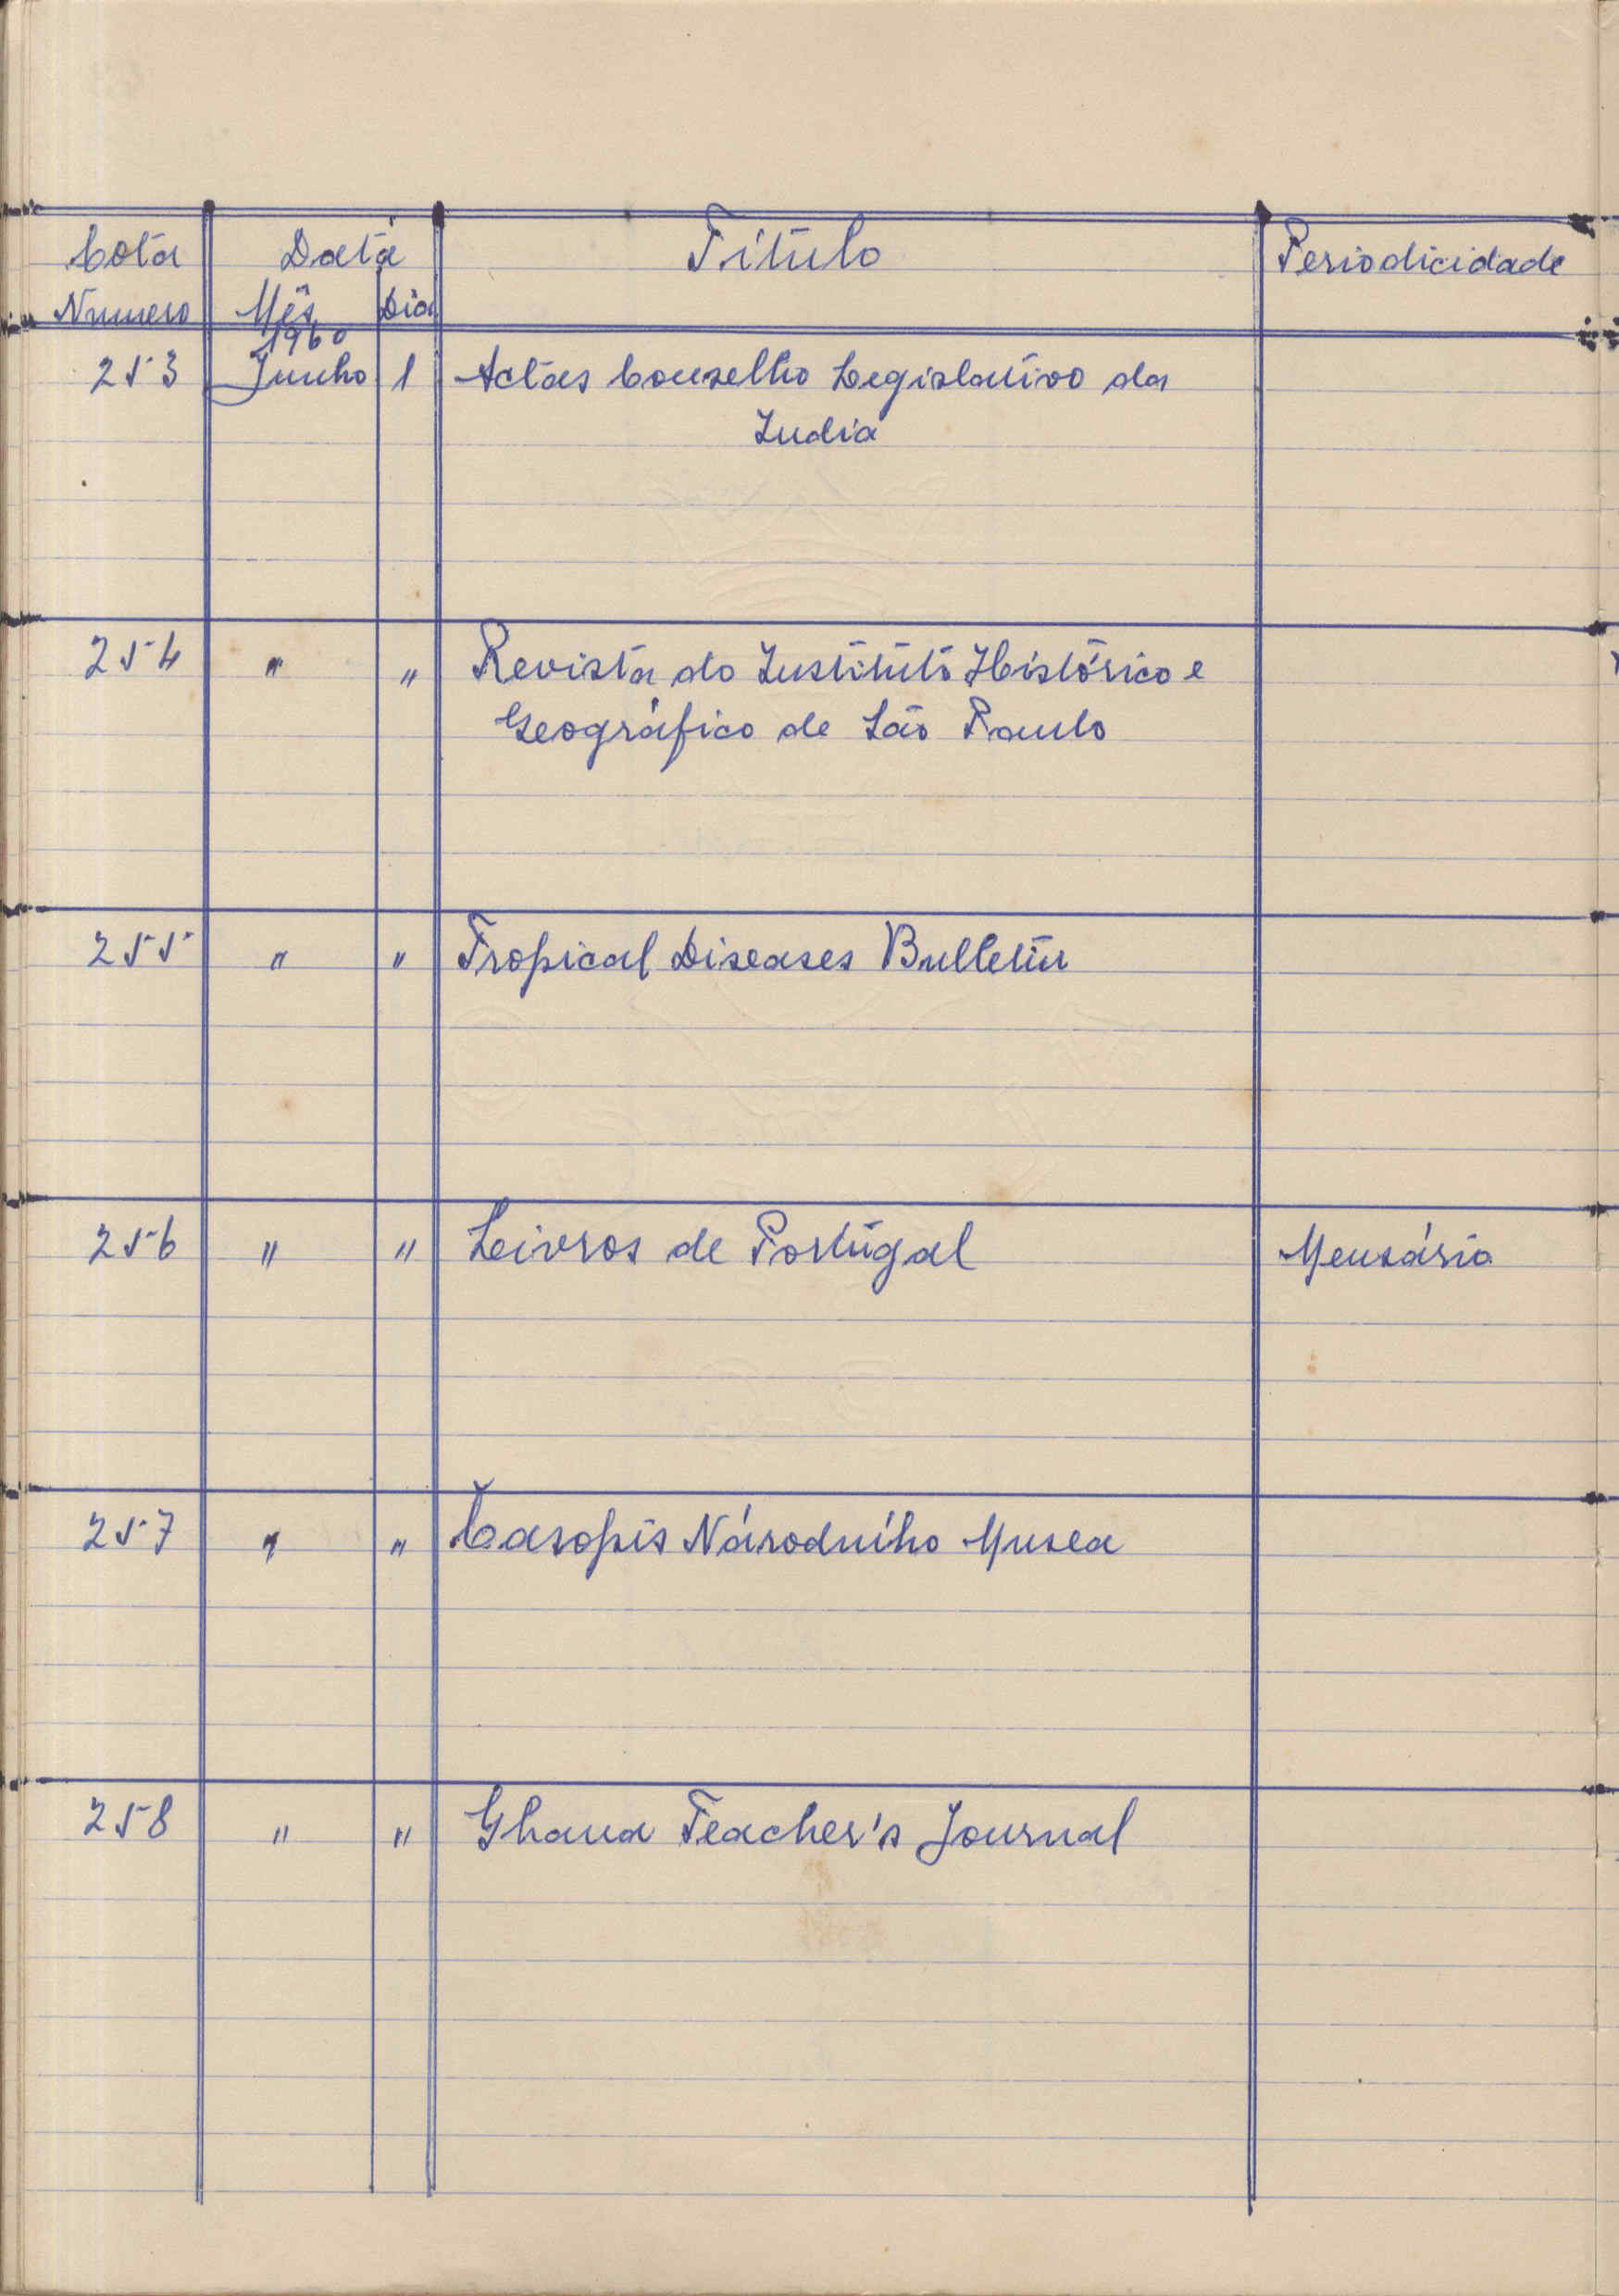 Cota Data Título Periodicidade
Numero Mês Dia
1960
253 Junho 1 Actas Conselho Legislativo da
India
254 " " Revista do Instituto Histórico e
Geográfico de São Paulo
255 " " Tropical Diseases Bulletin
256 " " Livros de Portugal Mensário
257 " " Časopis Národního Musea
258 " " Ghana Teacher's Journal